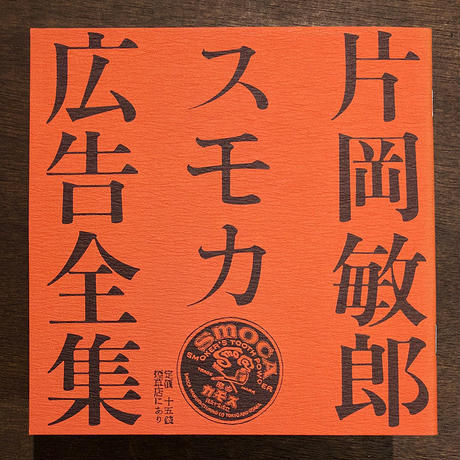 片岡敏郎
スモカ
広告全集
SMOCA
SMOKER'S TOOTH POWDER
スモカ
定價 十五錢
煙草店にあり